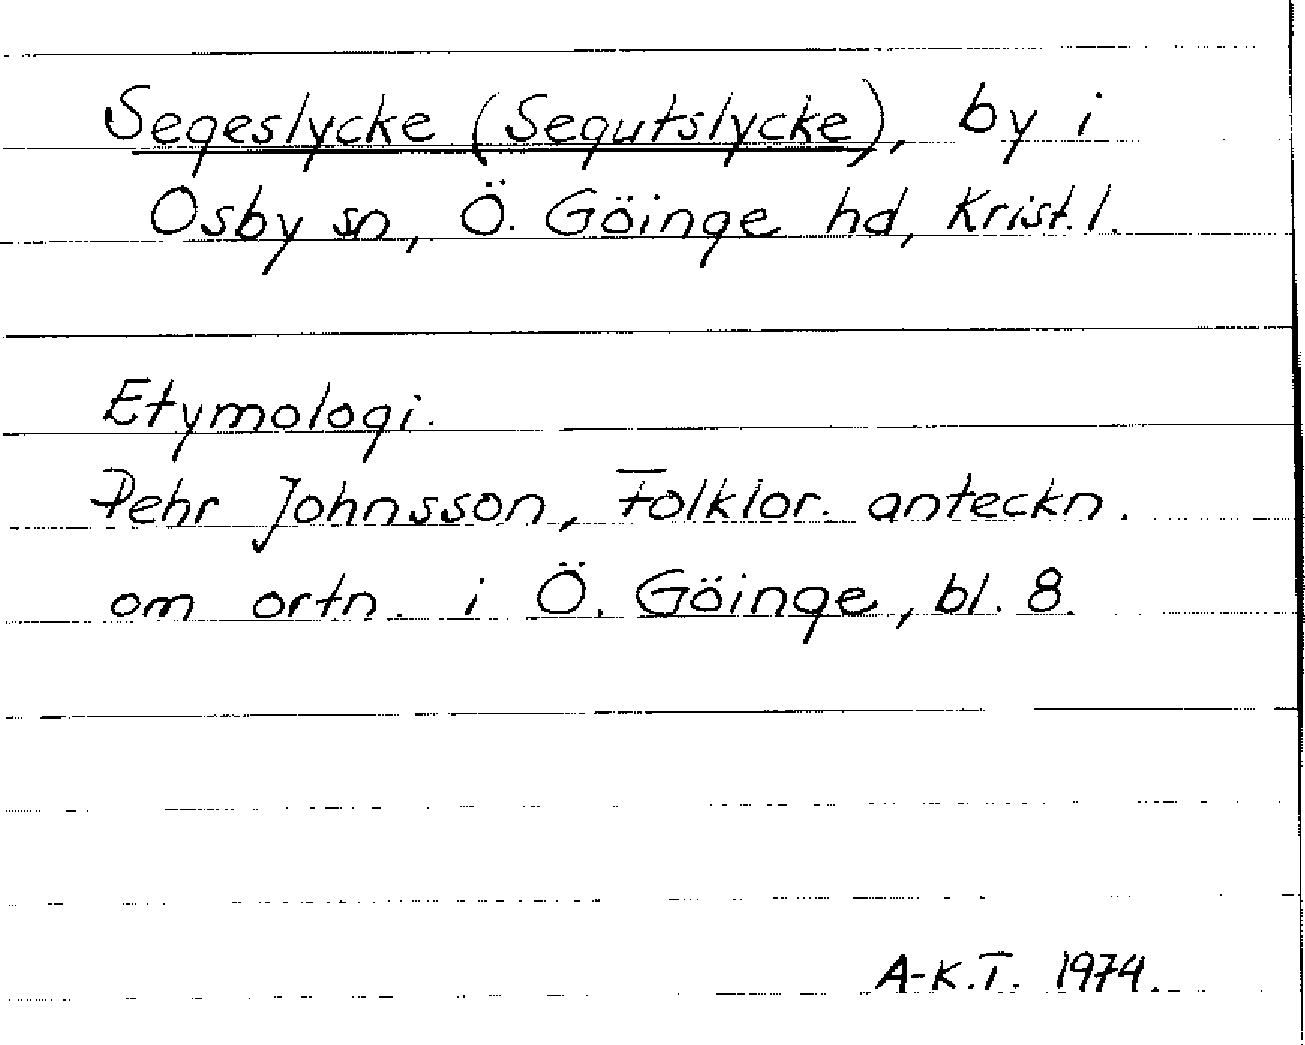 Segeslycke (Segutslycke), by i
Osby sn, Ö. Göinge hd, Krist. l.
Etymologi.
Pehr Johnsson, Folklor. anteckn.
om ortn. i Ö. Göinge, bl. 8.
A-K.T. 1974.